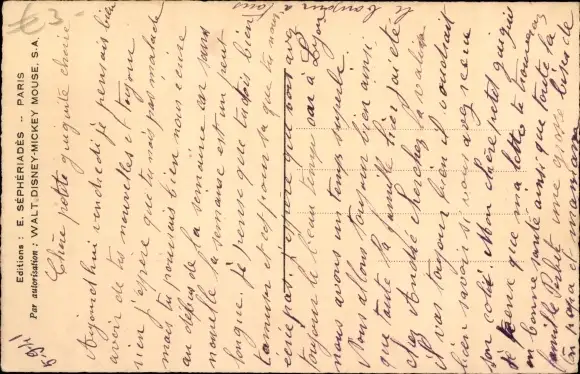 € 3-
Editions : E. SÉPHÉRIADÈS -- PARIS
Par autorisation : WALT. DISNEY-MICKEY MOUSE, S.A.
Chère petite guiguite cherie
Aujourd'hui vendredi je pensais bien
avoir de tes nouvelles et toujour
rien j'espère que tu n'ais pas malade
mais tu pouvais bien nous écrire
au début de la semaine car sans
nouvelle la semaine est un peut
longue. Je pense que tu bien
t'amuser et c'est pour sa que tu nous
écrie pas. J'espère que vous avez
toujour le beau temps car à Lyon
nous avons un temps superbe.
Nous allons toujour bien ainsi
que toute la famille hier j'ai été
chez André cherchez la valise
il vas toujour bien il voudrait
bien savoir si vous avez reçu
son colis. Mon chère petit guiguite
Je pense que ma lettre te trouve
en bonne santé ainsi que toute la
famille Petit une grosse bise de
ton papa et maman
le bonjour à tous